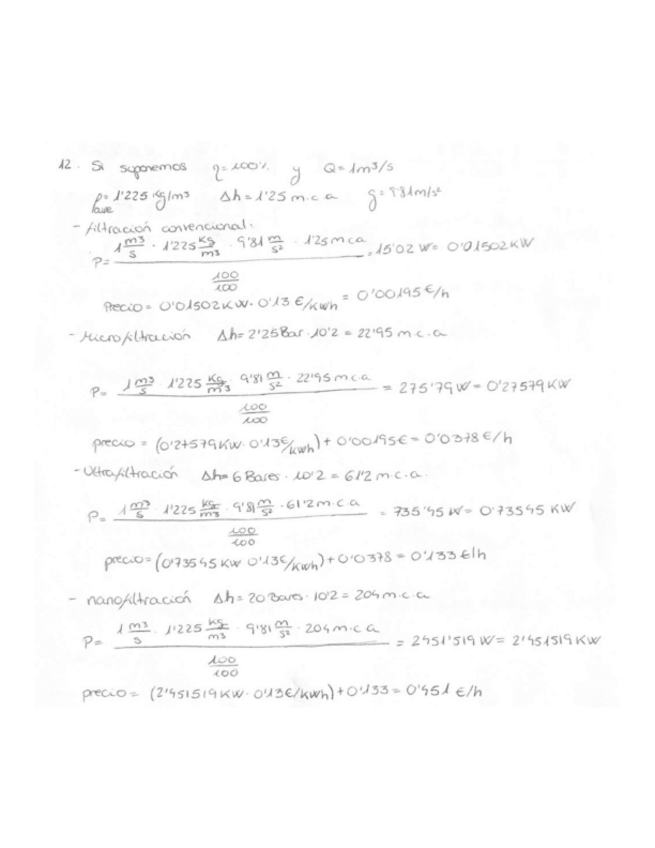 12. Si suponemos η=100% y Q=1m³/s
ρ=1'225 Kg/m³ Δh=1'25 m.c.a g=9'81m/s²
aire
- filtración convencional.
P= 1 m³/s · 1'225 Kg/m³ · 9'81 m/s² · 1'25mca / 100/100 = 15'02 W= 0'01502KW
Precio= 0'01502KW· 0'13 €/KWh = 0'00195€/h
- Microfiltración Δh=2'25Bar·10'2 = 22'95 m.c.a
P= 1 m³/s · 1'225 Kg/m³ · 9'81 m/s² · 22'95 m.c.a / 100/100 = 275'79W= 0'27579KW
precio = (0'27579KW·0'13€/KWh)+0'00195€=0'0378€/h
- Ultrafiltración Δh=6 Bares·10'2 = 61'2 m.c.a.
P= 1 m³/s · 1'225 Kg/m³ · 9'81 m/s² · 61'2m.c.a / 100/100 = 735'45 W= 0'73545 KW
precio=(0'73545KW 0'13€/KWh)+0'0378=0'133€/h
- nanofiltración Δh=20Bares·10'2=204m.c.a
P= 1 m³/s · 1'225 Kg/m³ · 9'81 m/s² · 204m.c.a / 100/100 = 2451'519W= 2'451519KW
precio= (2'451519KW·0'13€/KWh)+0'133=0'451 €/h